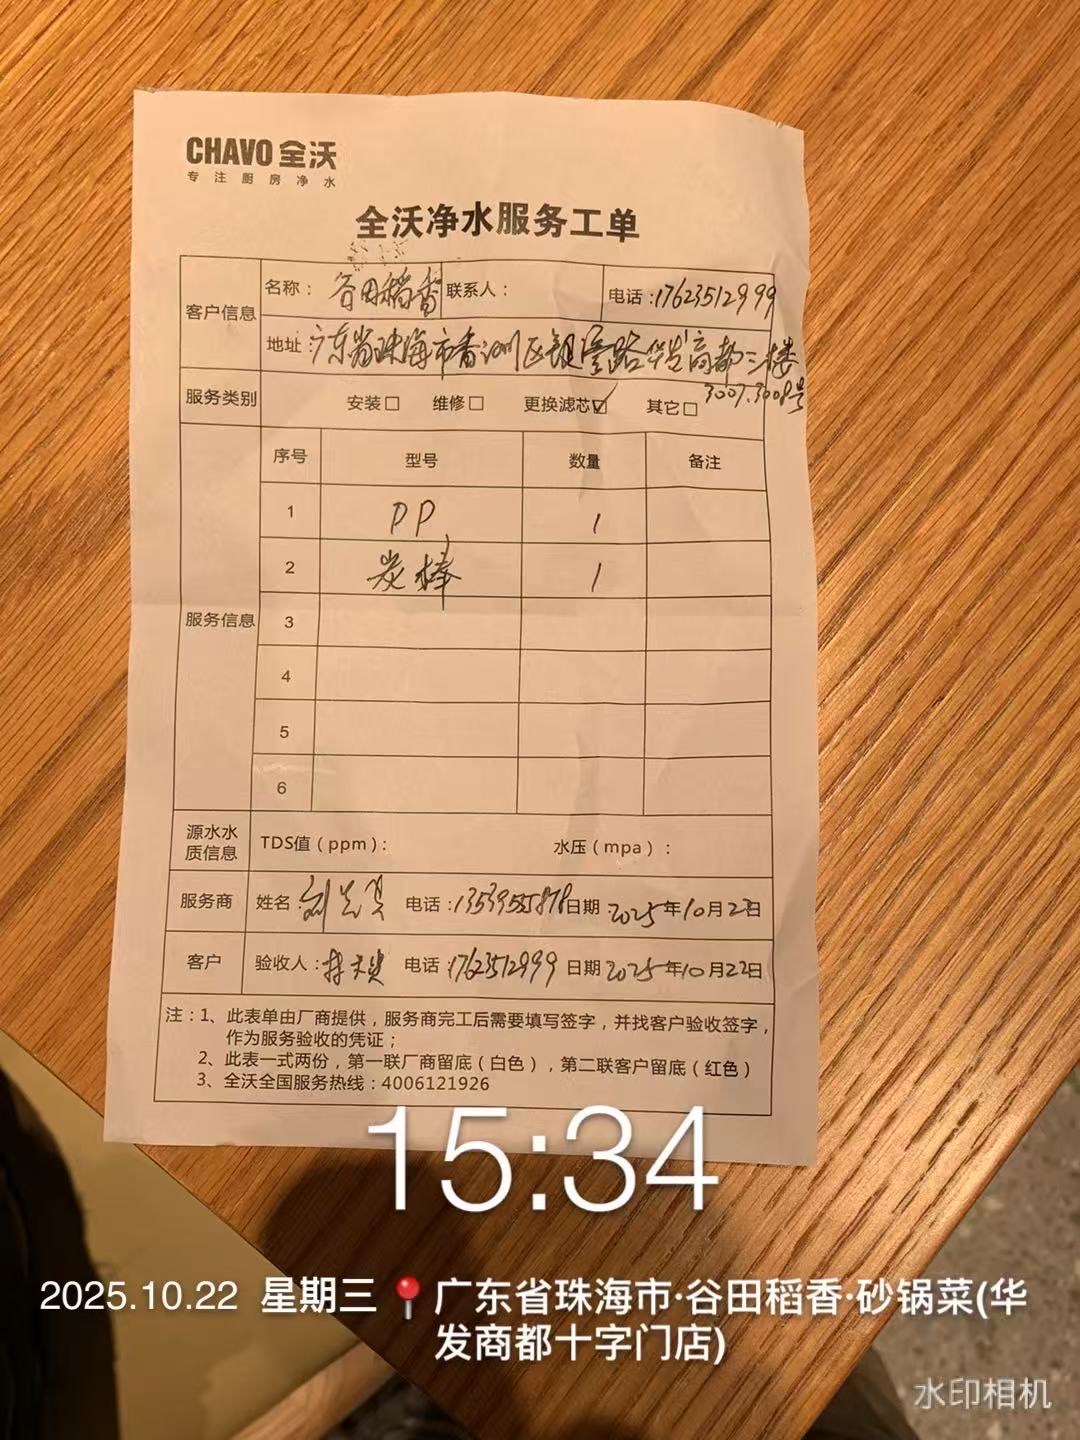 CHAVO 全沃
专注厨房净水
全沃净水服务工单
客户信息 名称：谷田稻香 联系人： 电话：17623512999
地址：广东省珠海市香洲区银湾路华发商都三楼
3007.3008号
服务类别 安装□ 维修□ 更换滤芯☑ 其它□
序号 型号 数量 备注
1 PP 1
2 炭棒 1
服务信息 3
4
5
6
源水水质信息 TDS值（ppm）： 水压（mpa）：
服务商 姓名：刘 电话： 日期 2025年10月22日
客户 验收人： 电话：17623512999 日期 2025年10月22日
注：1、此表单由厂商提供，服务商完工后需要填写签字，并找客户验收签字，
作为服务验收的凭证；
2、此表一式两份，第一联厂商留底（白色），第二联客户留底（红色）
3、全沃全国服务热线：4006121926
15:34
2025.10.22 星期三 📍广东省珠海市·谷田稻香·砂锅菜(华
发商都十字门店)
水印相机